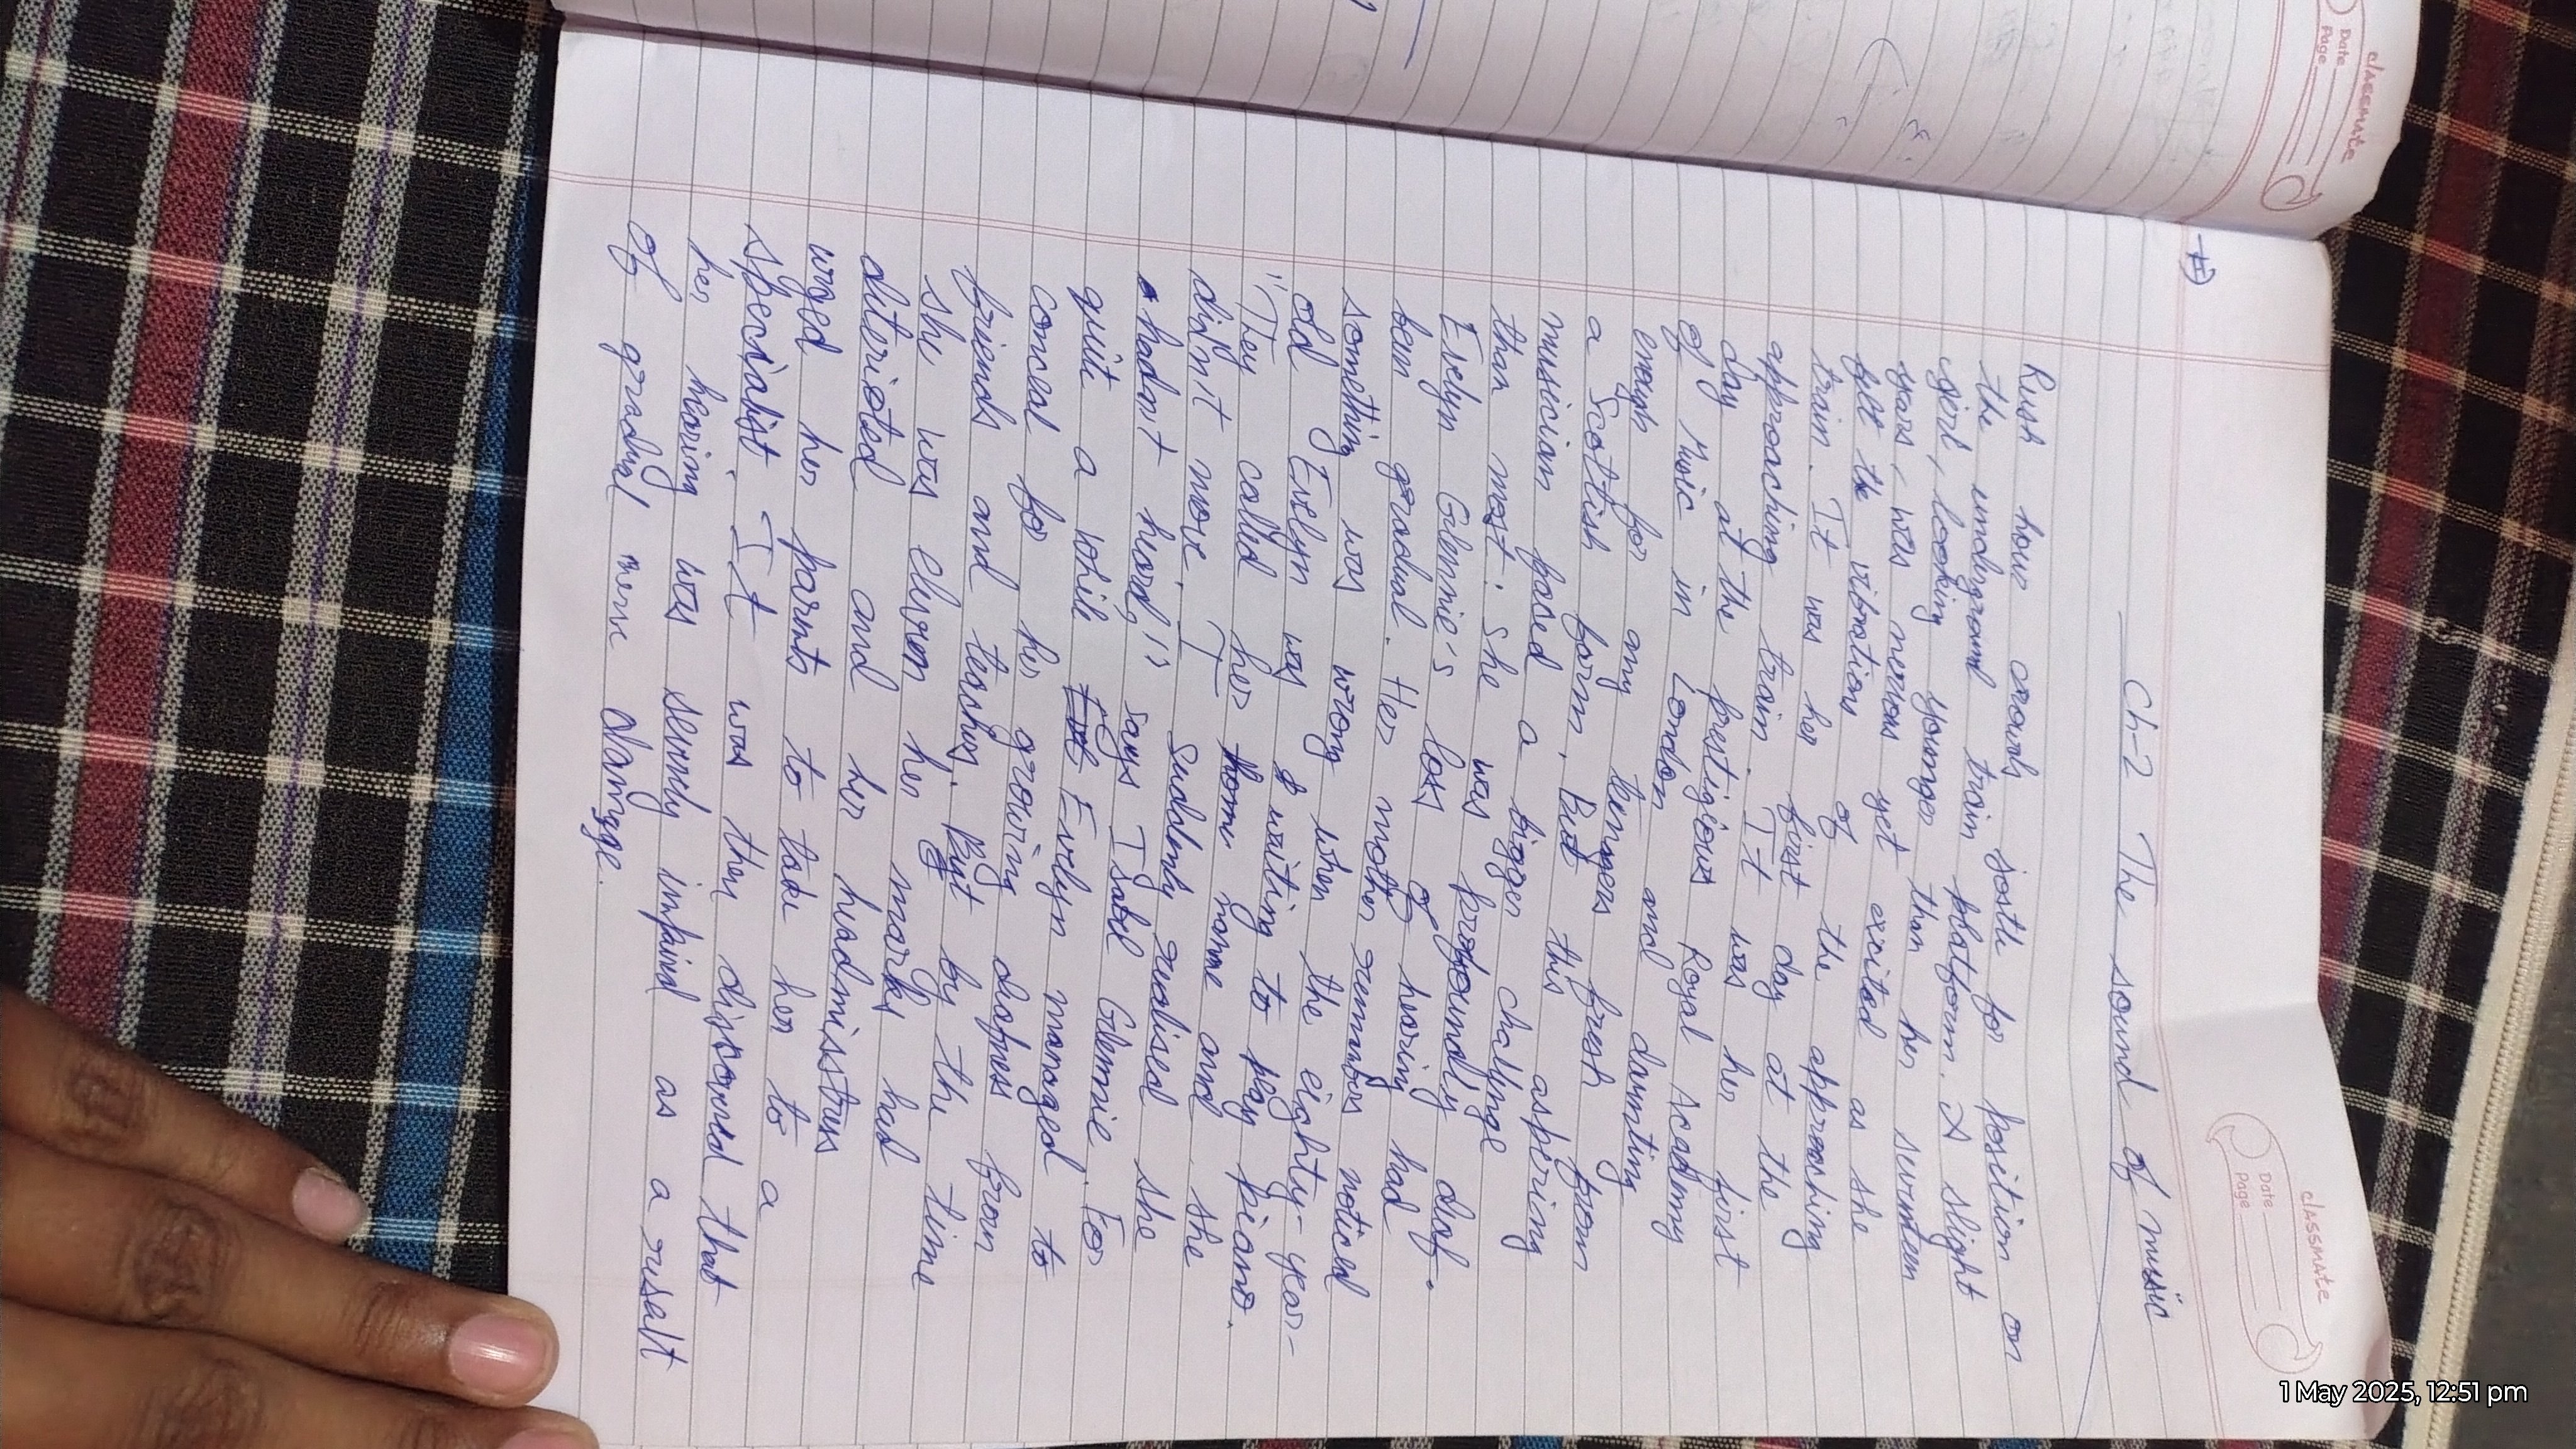 classmate
Date
Page
classmate
Date
Page
#)
Ch-2 The sound of music
Rush hour crowds jostle for position on
the underground train platform. A slight
girl, looking younger than her seventeen
years, was nervous yet excited as she
felt the vibrations of the approaching
train. It was her first day at the
approaching train. It was her first
day at the prestigious Royal Academy
of Music in London and daunting
enough for any teenager fresh from
a Scottish farm. But this aspiring
musician faced a bigger challenge
than most: she was profoundly deaf.
Evelyn Glennie's loss of hearing had
been gradual. Her mother remembers noticed
something was wrong when the eighty-year-
old Evelyn was waiting to play piano.
"They called her name and she
didn't move. I suddenly realised she
hadn't heard," says Isabel Glennie. For
quit a while Evelyn managed to
conceal for her growing deafness from
friends and teachers. But by the time
she was eleven her marks had
deterioted and her headmisstress
urged her parents to take her to a
specialist. It was then discovered that
her hearing was severely impired as a result
of gradual nerve damage.
1 May 2025, 12:51 pm